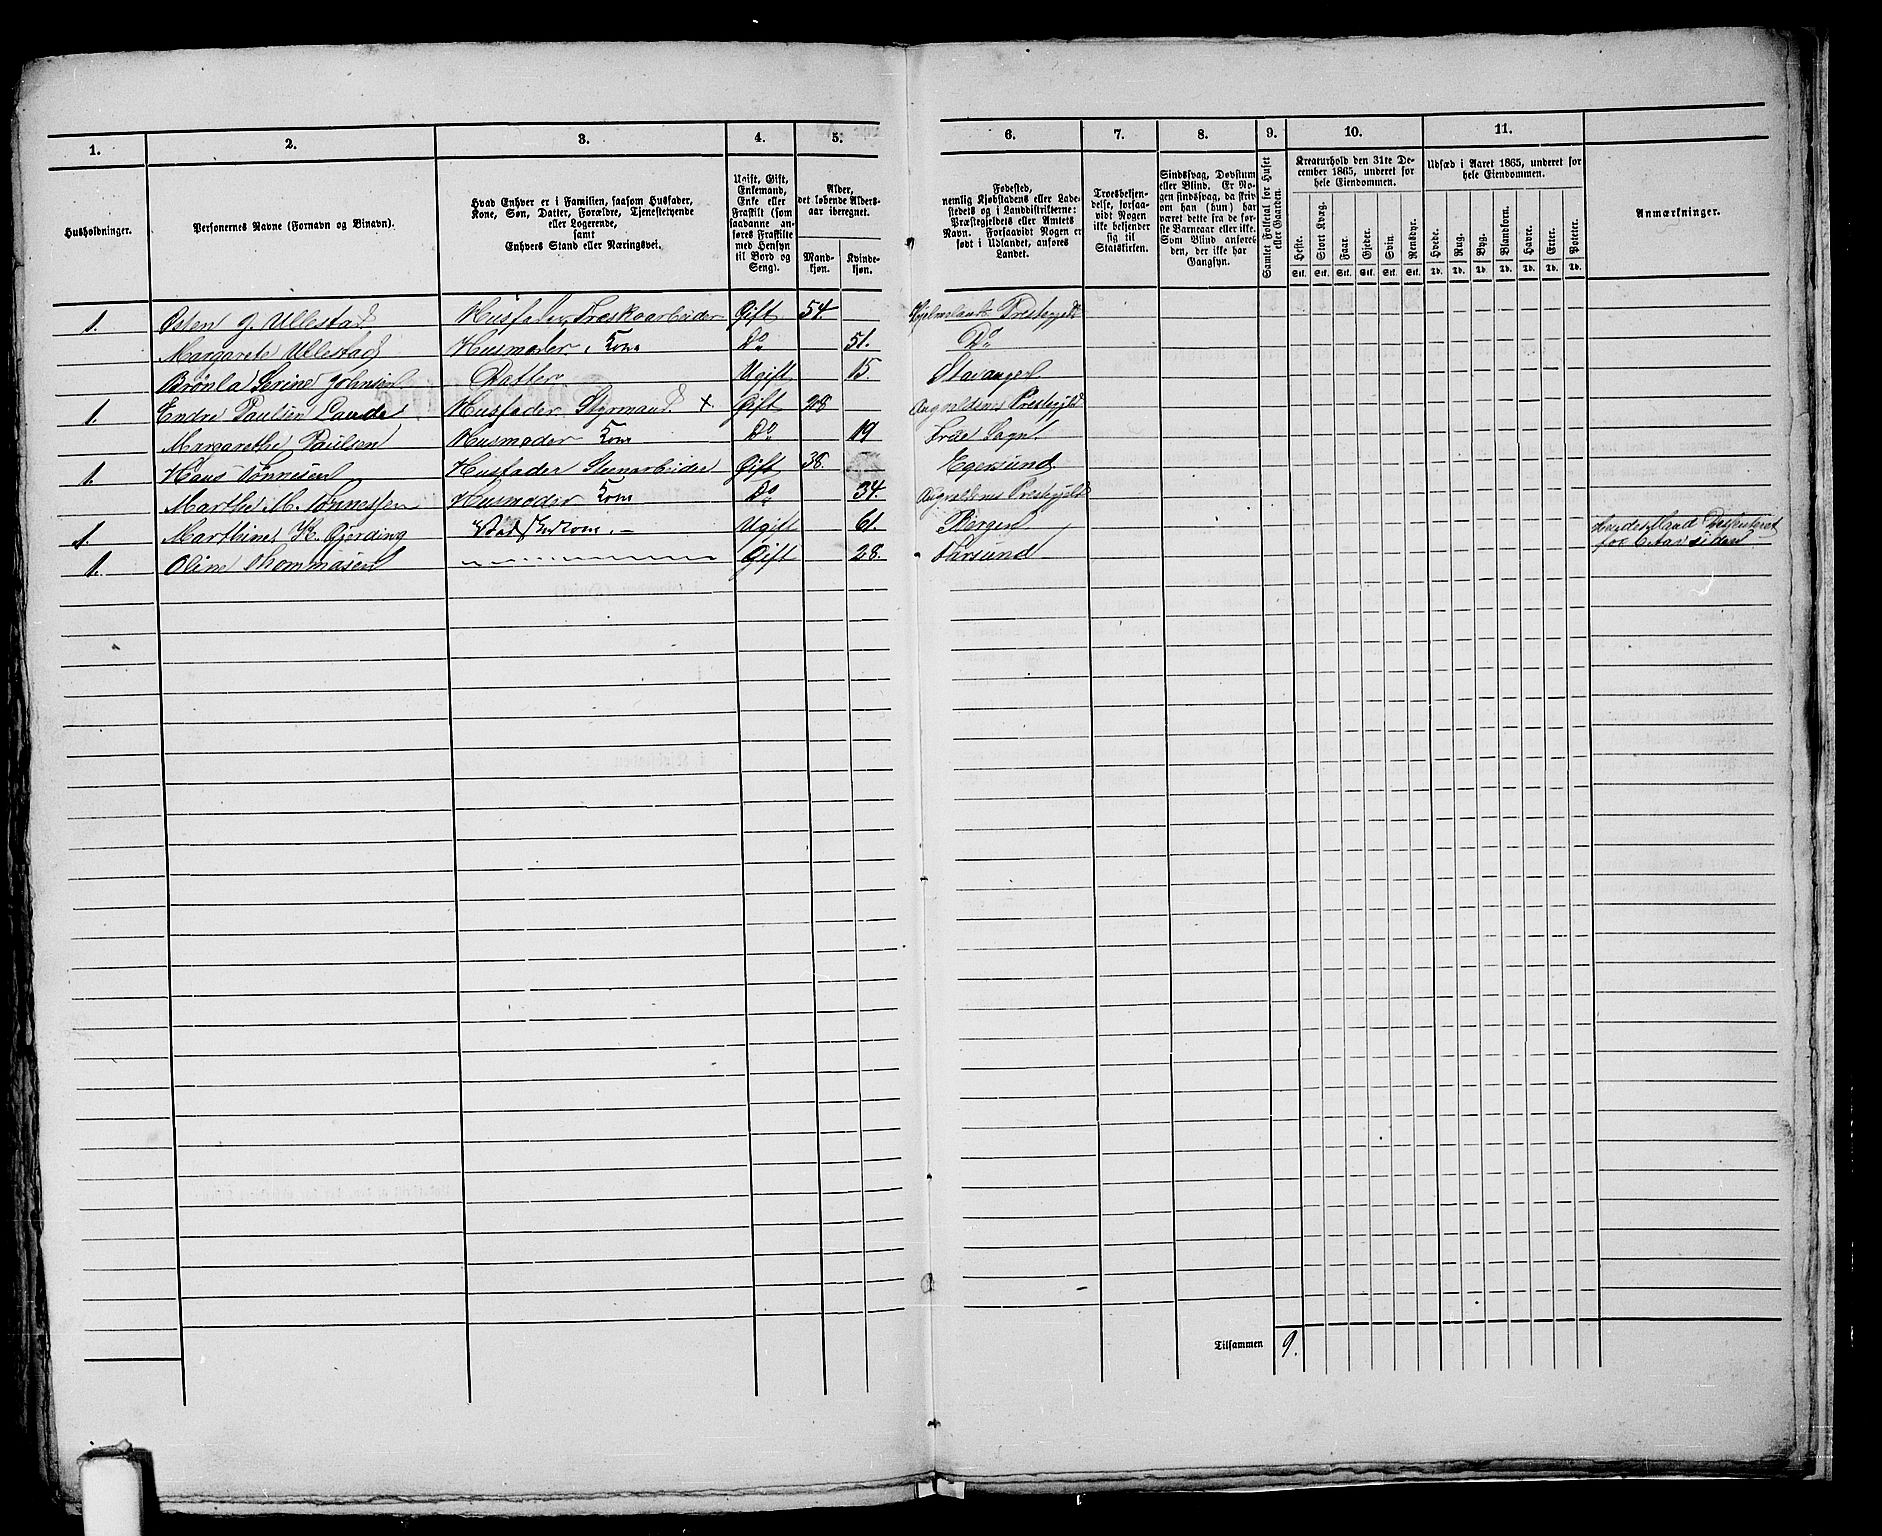 1. 2. 3. 4. 5. 6. 7. 8. 9. 10. 11.
Husholdninger.
Personernes Navne (Fornavn og Binavn).
Hvad Enhver er i Familien, saasom Husfader,
Kone, Søn, Datter, Forældre, Tjenestetyende
eller Logerende,
samt
Enhvers Stand eller Næringsvei.
Ugift, Gift,
Enkemand,
Enke eller
Fraskilt (som
saadanne an-
føres Fraskilte
med Hensyn
til Bord og
Seng).
Alder,
det løbende Alders-
aar iberegnet.
Mand-
kjøn.
Kvinde-
kjøn.
Fødested,
nemlig Kjøbstadens eller Lade-
stedets og i Landdistrikterne:
Præstegjeldets eller Amtets
Navn. Forsaavidt Nogen er
født i Udlandet, anføres
Landet.
Troesbekjen-
delse, forsaa-
vidt Nogen
ikke bekjender
sig til
Statskirken.
Sindssvag, Døvstum
eller Blind. Er No-
gen sindssvag, da skriv
om han (hun) har
været dette fra de før-
ste Barneaar eller ikke.
Som Blind anføres
den, der ikke har
Gangsyn.
Samlet Folketal for Huset
eller Gaarden.
Kreaturhold den 31te De-
cember 1865, underet for
hele Eiendommen.
Heste. Stort Kvæg. Faar. Gjeder. Svin. Rensdyr.
Stk. Stk. Stk. Stk. Stk. Stk.
Udsæd i Aaret 1865, underet for
hele Eiendommen.
Hvede. Rug. Byg. Blandkorn. Havre. Erter. Poteter.
Td. Td. Td. Td. Td. Td. Td.
Anmærkninger.
1. Osten G. Ullestad Husfader, Træskoarbeider Gift 54. Hjelmelands Prestegjeld
Margarete Ullestad Husmoder, Kone Do 51. Do
Serine Johnsen Datter Ugift 15. Stavanger
1. Endre Paulsen Husfader Styrmand × Gift 28 Augvaldsnes Prestegjeld
Margarethe Paulsen Husmoder Kone Do 19
1. Hans Tønnesen Husfader Steenarbeider Gift 38. Egersund
Marthe M. Tønnessen Husmoder Kone Do 34. Augvaldsnes Prestegjeld
1. Marthine K. Gjerding Ugift 61. Bergen
1. Oline Thommasen Gift 28. Farsund
for 6 Aar siden
Tilsammen 9.